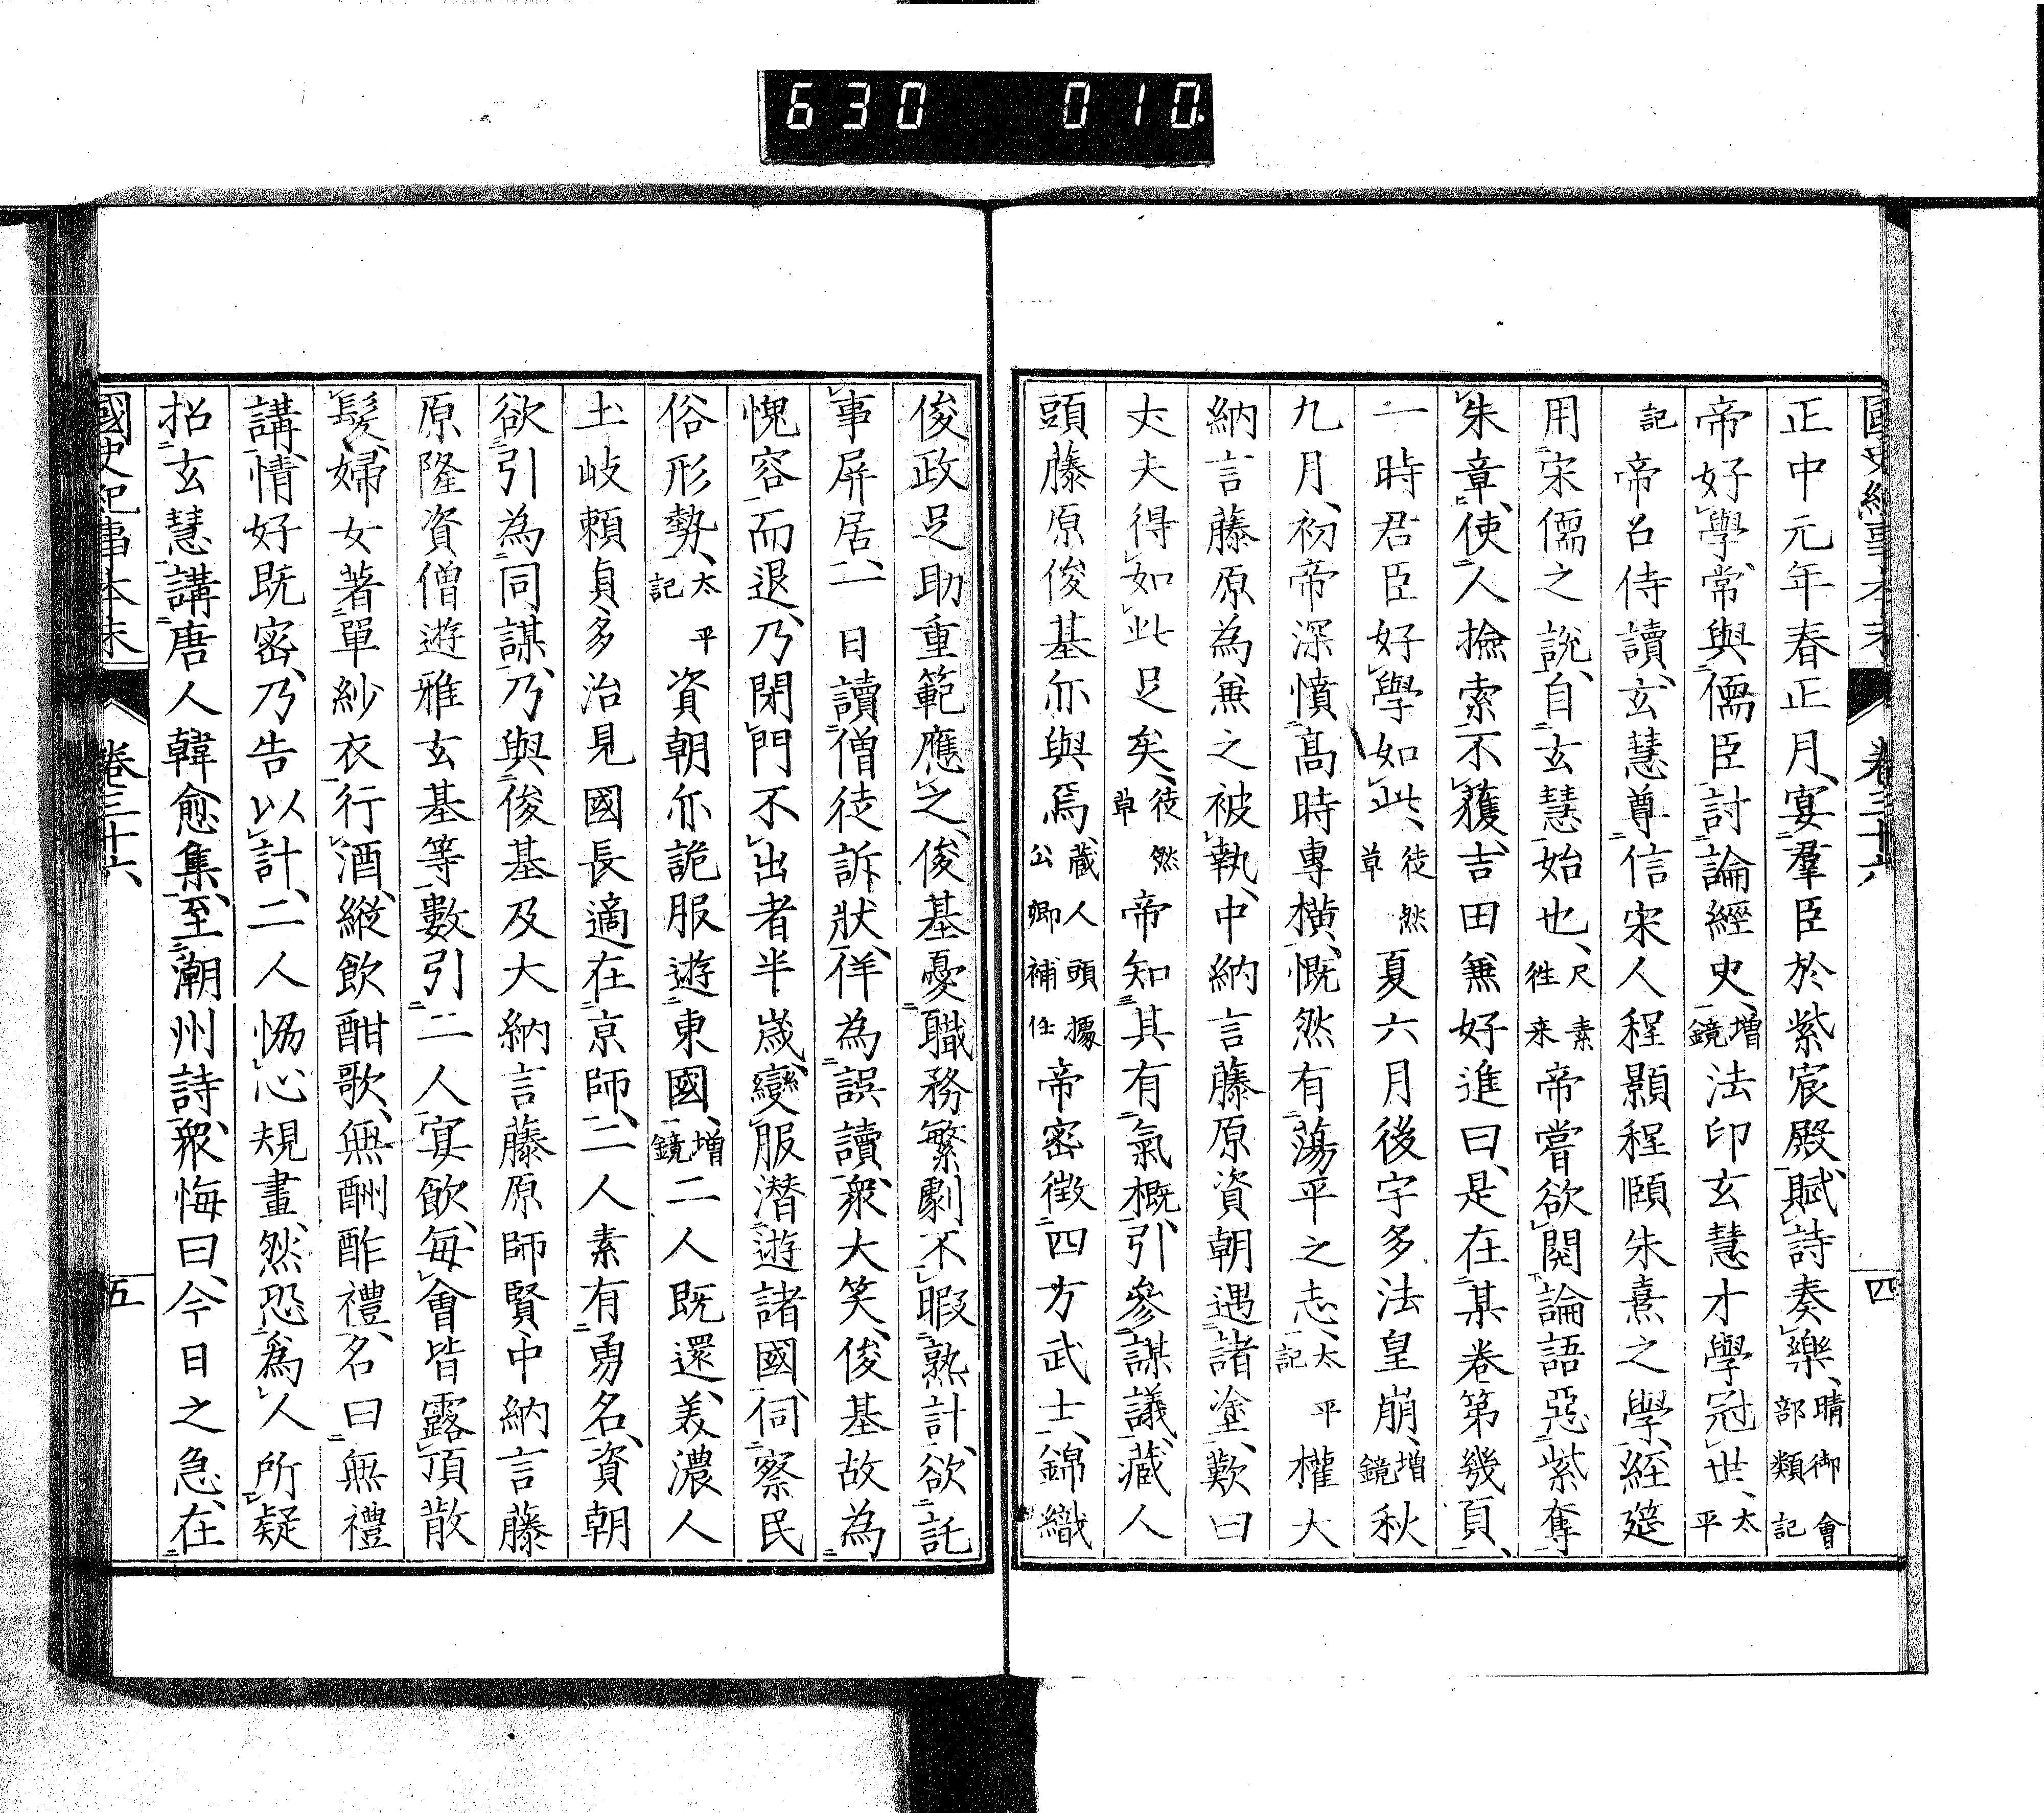 630 010.
國史紀事本末 卷三十六 四
正中元年春正月、宴羣臣於紫宸殿、賦詩奏樂、晴御會部類記
帝好學、常與儒臣討論經史、增鏡法印玄慧才學冠世、太平
記帝召侍讀、玄慧尊信宋人程顥程頤朱熹之學、經筵
用宋儒之說、自玄慧始也、尺素往来帝嘗欲閱論語惡紫奪
朱章、使人撿索不獲、吉田無好進曰、是在某卷第幾頁、
一時君臣好學如此、徒然草夏六月後宇多法皇崩、增鏡秋
九月、初帝深憤高時專横、慨然有蕩平之志、太平記權大
納言藤原為無之被執、中納言藤原資朝遇諸塗、歎曰
大夫得如此足矣、徒然草帝知其有氣概、引參謀議、藏人
頭藤原俊基亦與焉、藏人頭據公卿補任帝密徴四方武士、錦織
俊政足助重範應之、俊基憂職務繁劇不暇熟計、欲託
事屏居、一日讀僧徒訴狀、佯為誤讀、衆大笑、俊基故為
愧容而退、乃閉門不出者半歲、變服潜遊諸國、伺察民
俗形勢、太平記資朝亦詭服遊東國、增鏡二人既還、美濃人
土岐賴貞多治見國長適在京師、二人素有勇名、資朝
欲引為同謀、乃與俊基及大納言藤原師賢中納言藤
原隆資僧遊雅玄基等數引二人宴飲、每會皆露頂散
髮、婦女著單紗衣行酒、縱飲酣歌、無酬酢禮、名曰無禮
講、情好既密、乃告以計、二人恊心規畫、然恐為人所疑
招玄慧講唐人韓愈集、至潮州詩、衆悔曰、今日之急、在
國史紀事本末 卷三十六 五